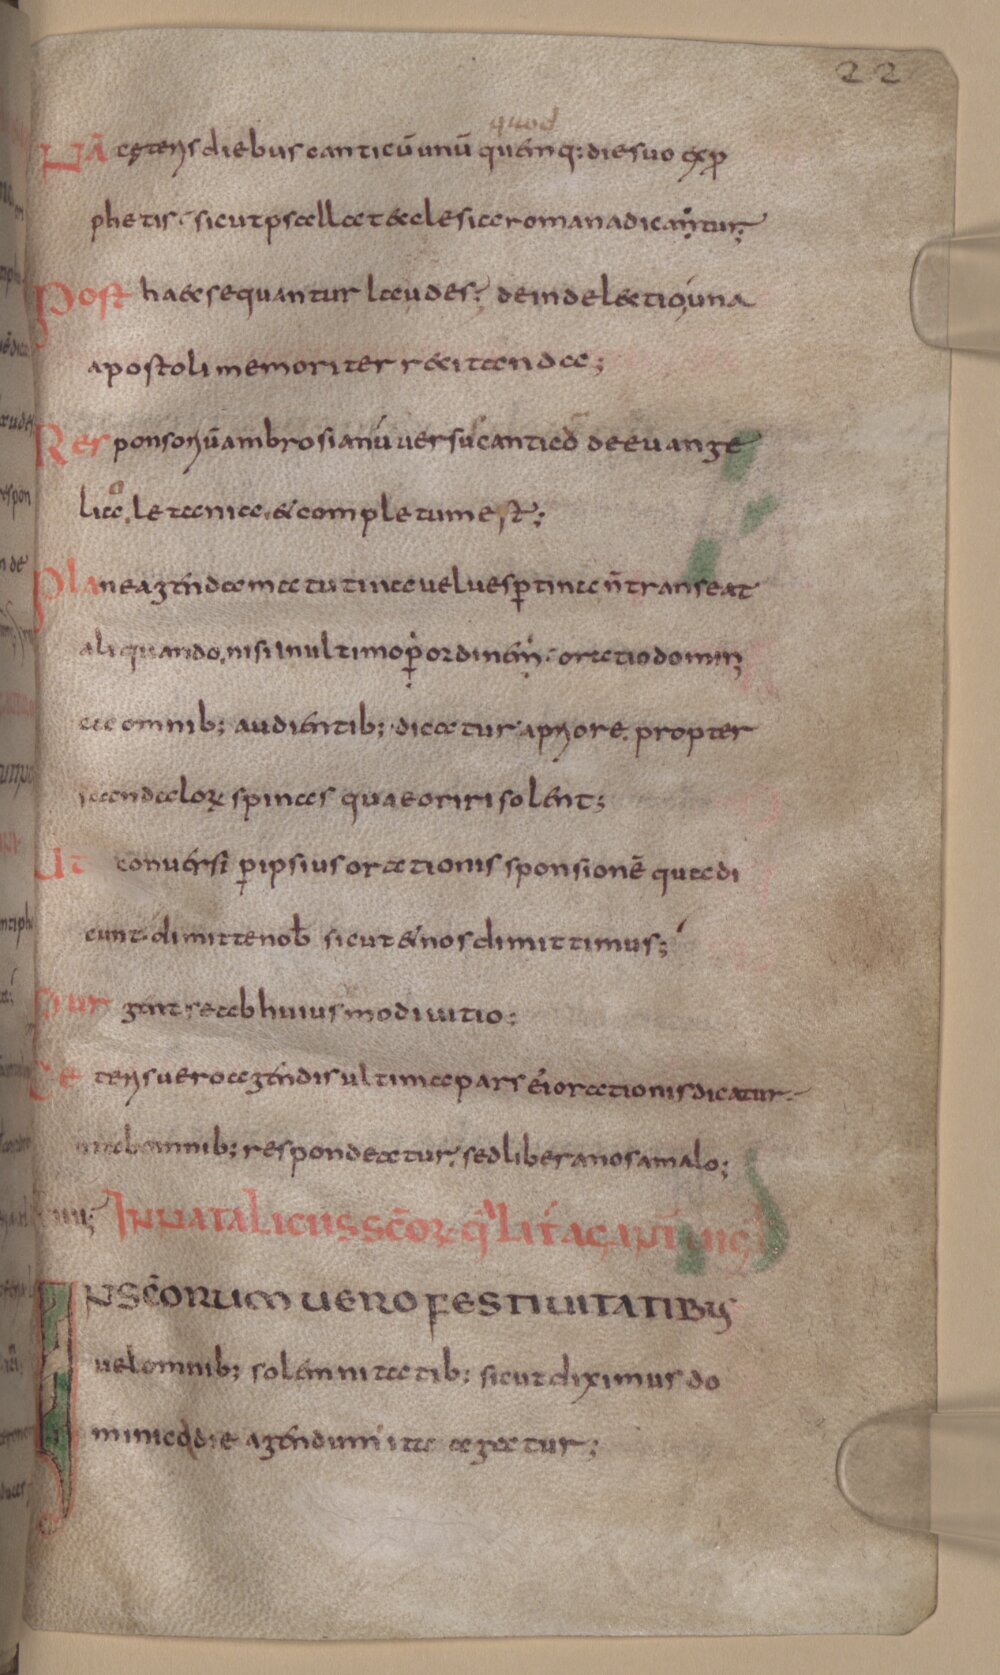 22
quod
Nā cęteris diebus canticū unū quēmq: die suo ex p
phetis. sicut psallat æcclesia romana dicantur;
Post haec sequantur laudes; deinde lectio una
apostoli memoriter recitanda;
Responsoriū ambrosianū versu canticū de evange
lica. letania. & completum est;
Plane agenda matutina vel vespertina ñ transeat
aliquando, nisi in ultimo p ordinem oratio domini
ca omnib; audientib; dicatur a priore. propter
scandalorum spinas quae oriri solent;
Ut conversi p ipsius orationis sponsionē qua di
cunt. dimitte nob sicut & nos dimittimus;
Purgent se ab huiusmodi vitio;
Ceteris vero agendis ultima pars ei orationis dicatur.
ut ab omnib; respondeatur. sed libera nos a malo;
In nataliciis scōr qlit agant vig
In scōrum vero festivitatibus
vel omnib; solemnitatib; sicut diximus do
minico die agendum ita agatur;